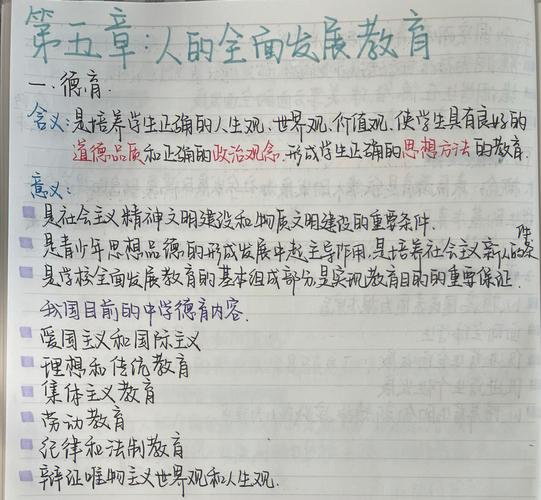 第五章：人的全面发展教育
一. 德育.
含义：是培养学生正确的人生观、世界观、价值观，使学生具有良好的
道德品质和正确的政治观念，形成学生正确的思想方法的教育.
意义：
是社会主义精神文明建设和物质文明建设的重要条件.
是青少年思想品德的形成发展中起主导作用，是培养社会主义新人的条
件
是学校全面发展教育的基本组成部分，是实现教育目的的重要保证.
我国目前的中学德育内容.
爱国主义和国际主义
理想和传统教育
集体主义教育
劳动教育
纪律和法制教育
辩证唯物主义世界观和人生观.